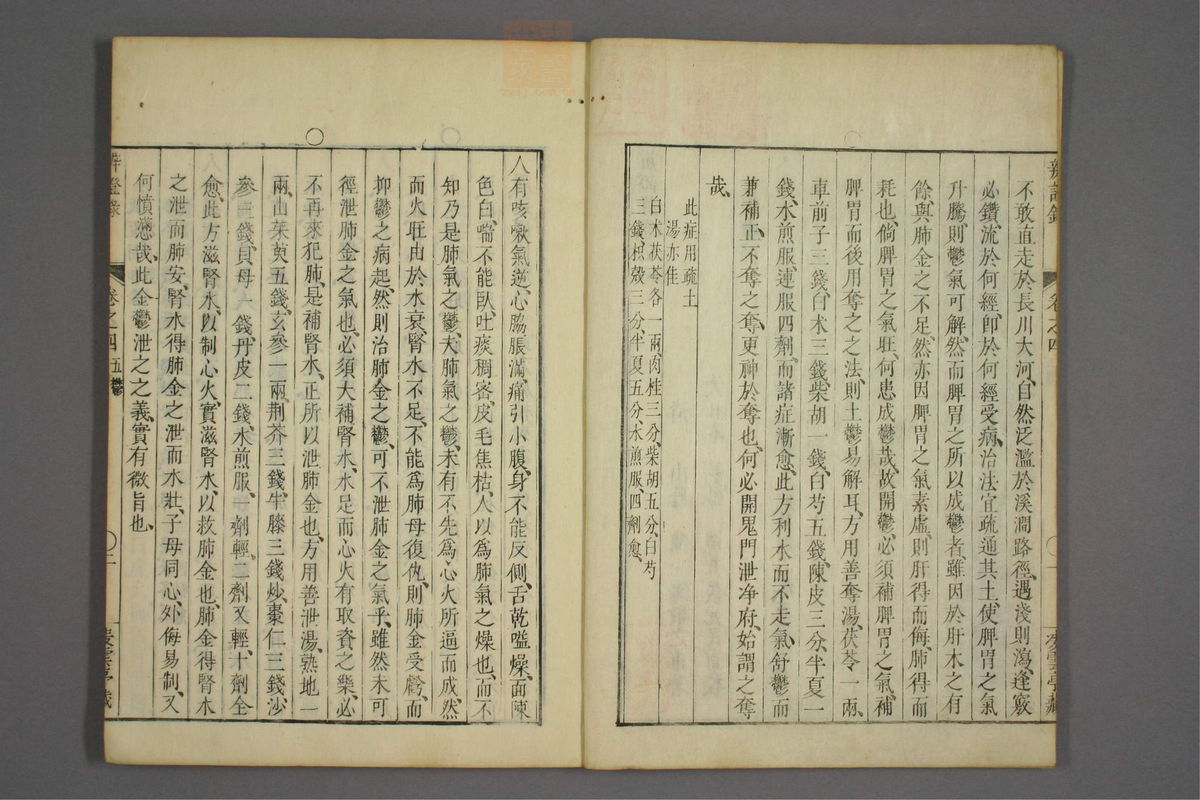 不敢直走於長川大河、自然泛濫於溪澗路徑、遇淺則瀉、逢竅
必鑽、流於何經、卽於何經受病、治法宜疏通其土、使脾胃之氣
升騰、則鬱氣可解、然而脾胃之所以成鬱者、雖因於肝木之有
餘、與肺金之不足、然亦因脾胃之氣素虛、則肝得而侮、肺得而
耗也、倘脾胃之氣旺、何患成鬱哉、故開鬱必須補脾胃之氣、補
脾胃而後用奪之之法、則土鬱易解耳、方用善奪湯、茯苓一兩、
車前子三錢、白术三錢、柴胡一錢、白芍五錢、陳皮三分、半夏一
錢、水煎服、連服四劑、而諸症漸愈、此方利水而不走氣、舒鬱而
兼補正、不奪之奪、更神於奪也、何必開鬼門泄净府、始謂之奪
哉、
此症用疏土
湯亦佳
白术茯苓各一兩、肉桂三分、柴胡五分、白芍
三錢、枳殼三分、半夏五分、水煎服、四劑愈、
卷之四
人有咳嗽氣逆、心脇脹滿、痛引小腹、身不能反側、舌乾嗌燥、面陳
色白、喘不能臥、吐痰稠密、皮毛焦枯、人以爲肺氣之燥也、而不
知乃是肺氣之鬱、夫肺氣之鬱、未有不先爲心火所逼而成然
而火旺由於水衰、腎水不足、不能爲肺母復仇、則肺金受虧、而
抑鬱之病起、然則治肺金之鬱、可不泄肺金之氣乎、雖然未可
徑泄肺金之氣也、必須大補腎水、水足而心火有取資之樂、必
不再來犯肺、是補腎水、正所以泄肺金也、方用善泄湯、熟地一
兩、山茱萸五錢、玄參一兩、荆芥三錢、牛膝三錢、炒棗仁三錢、沙
參三錢、貝母一錢、丹皮二錢、水煎服、一劑輕、二劑又輕、十劑全
愈、此方滋腎水、以制心火、實滋腎水、以救肺金也、肺金得腎水
之泄而肺安、腎水得肺金之泄而水壯、子母同心、外侮易制、又
何憤懣哉、此金鬱泄之之義、實有微旨也、
卷之四 五鬱
二